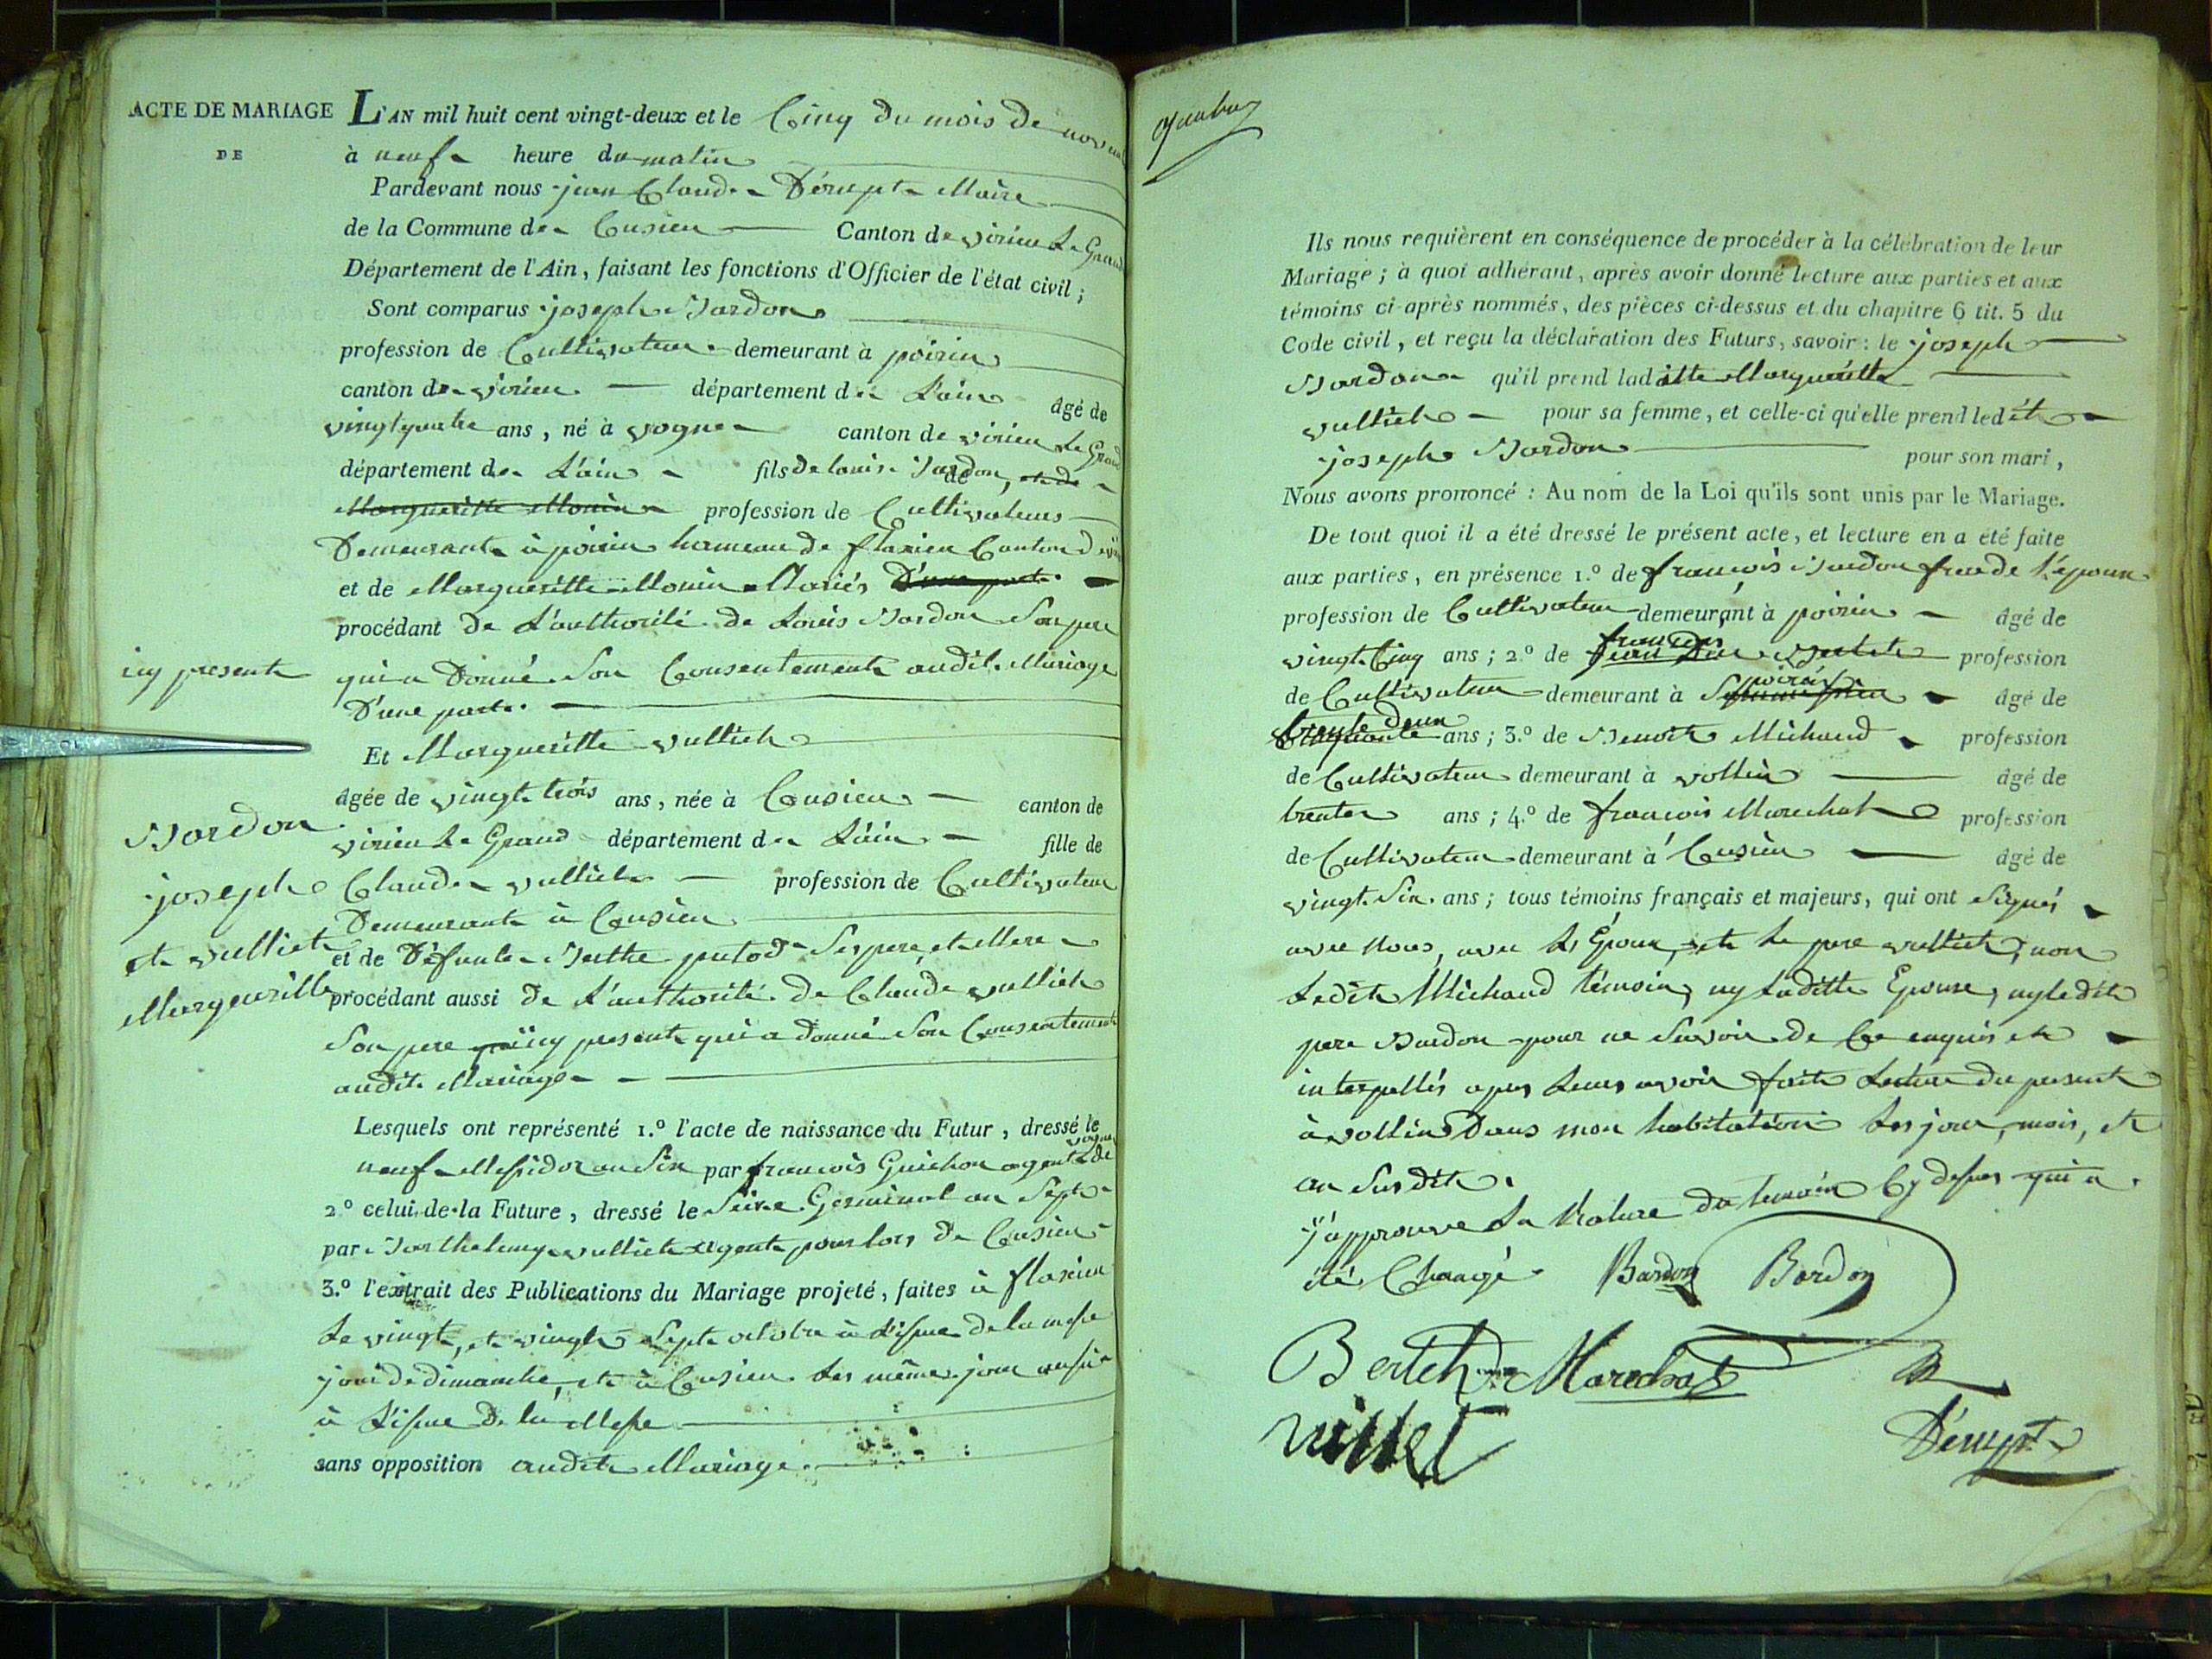 ACTE DE MARIAGE
DE
L'AN mil huit cent vingt-deux et le Cinq du mois de novem
à neuf heure du matin
Pardevant nous jean Claude Dérupt Maire
de la Commune de Cusieu Canton de virieu Le Grand
Département de l'Ain, faisant les fonctions d'Officier de l'état civil;
Sont comparus joseph Bardon
profession de Cultivateur demeurant à poirin
canton de virieu département de L'ain âgé de
vingtquatre ans, né à vogne canton de virieu Le Grand
département de L'ain fils de louis Bardon, et de
Margueritte Monin profession de Cultivateurs
Demeurant à poirin hameau de flaxieu Canton de
et de Margueritte Monin Mariés D'une part
procédant de L'authorité de Louis Bardon Son pere
icy present qui a Donné Son Consentement audit Mariage
D'une part.
Et Margueritte vulliet
âgée de vingt trois ans, née à Cusieu canton de
virieu Le Grand département de L'ain fille de
Claude vulliet profession de Cultivateur
Demeurant à Cusieu
et de Défunte Berthe putod Ses pere, et Mere
procédant aussi de L'authorité de Claude vulliet
Son pere icy present qui a donné Son Consentement
audit Mariage
Bardon
joseph
et vulliet
Marguerille
Lesquels ont représenté 1.º l'acte de naissance du Futur, dressé le
neuf Messidor an Six par francois Guichon agent de vogne
2º celui de la Future, dressé le Seize Germinal an Sept
par Barthelemy vulliet agent pour lors de Cusieu
3.º l'extrait des Publications du Mariage projeté, faites à flaxieu
Le vingt, et vingt Sept octobre à L'issue de la messe
jour de dimanche, et à Cusieu Les même jour aussi
à L'issue de la Messe
sans opposition audit Mariage.
Ils nous requièrent en conséquence de procéder à la célébration de leur
Mariage; à quoi adhérant, après avoir donné lecture aux parties et aux
témoins ci-après nommés, des pièces ci-dessus et du chapitre 6 tit. 5 du
Code civil, et reçu la déclaration des Futurs, savoir: le joseph
Bardon qu'il prend ladite Margueritte
vulliet pour sa femme, et celle-ci qu'elle prend ledit
joseph Bardon pour son mari,
Nous avons prononcé: Au nom de la Loi qu'ils sont unis par le Mariage.
De tout quoi il a été dressé le présent acte, et lecture en a été faite
aux parties, en présence 1.º de françois Bardon frere de L'époux
profession de Cultivateur demeurant à poirin âgé de
vingt Cinq ans; 2.º de francois profession
de Cultivateur demeurant à poirin âgé de
trente deux ans; 3.º de Benoit Michaud profession
de Cultivateur demeurant à vollin âgé de
trente ans; 4.º de francois Marechal profession
de Cultivateur demeurant à Cusieu âgé de
vingt Six ans; tous témoins français et majeurs, qui ont Signés
avec Nous, avec L'Epoux, et Le pere vulliet, non
Ledit Michaud témoin, ny Laditte Epouse, ny ledit
pere Bardon pour ne Savoir de Ce enquis et
interpellés apres Leurs avoir fait Lecture du present
à vollin Dans mon habitation Les jour, mois, et
an Susdit.
j'approuve La Rature du temoin Cy dessus qui a
été Changé. Bardon Bardon
Bertet Marechal
vulliet
Dérupt